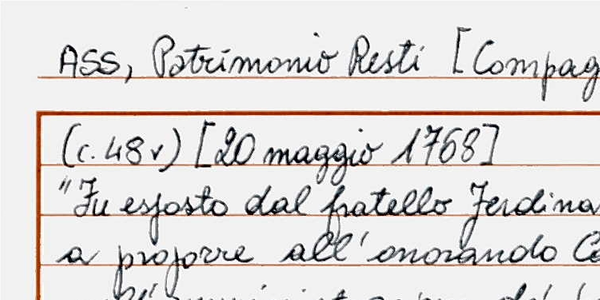 ASS, Patrimonio Resti [Compag
(c. 48v) [20 maggio 1768]
"Fu esposto dal fratello Ferdina
a proporre all'onorando Co